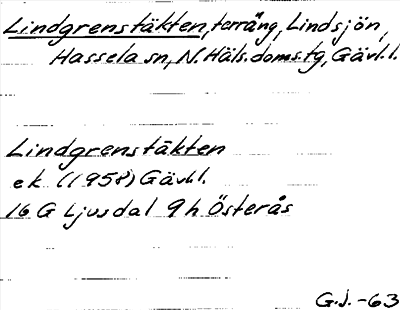 Lindgrenstäkten, terräng, Lindsjön,
Hassela sn, N. Häls. doms. tg, Gävl. l.
Lindgrenstäkten
ek. (1958) Gävl. l.
16 G Ljusdal 9 h Österås
G.J. -63